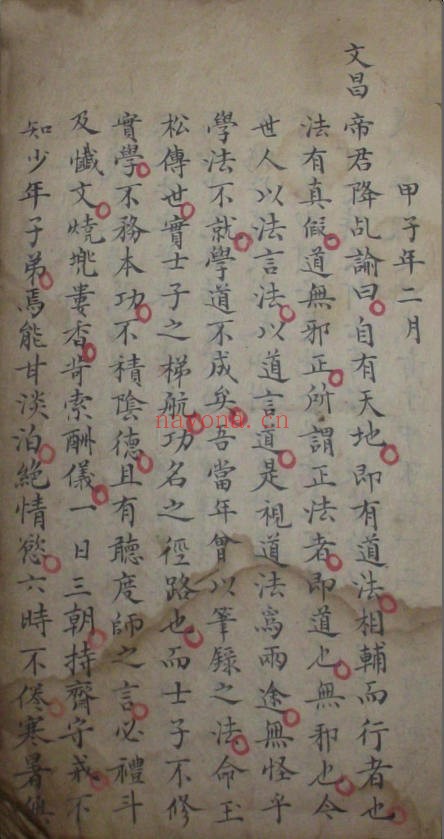 甲子年二月
文昌帝君降乩諭曰自有天地即有道法相輔而行者也
法有真假道無邪正所謂正法者即道也無邪也今
世人以法言法以道言道是視道法爲兩途無怪乎
學法不就學道不成矣吾當年曾以筆錄之法命玉
松傳世實士子之梯航功名之徑路也而士子不修
實學不務本功不積陰德且有聽度師之言必禮斗
及懺文燒兠婁香索酬儀一日三朝持齊守戒不
知少年子弟焉能甘淡泊絕情慾六時不倦寒暑
nayona.cn